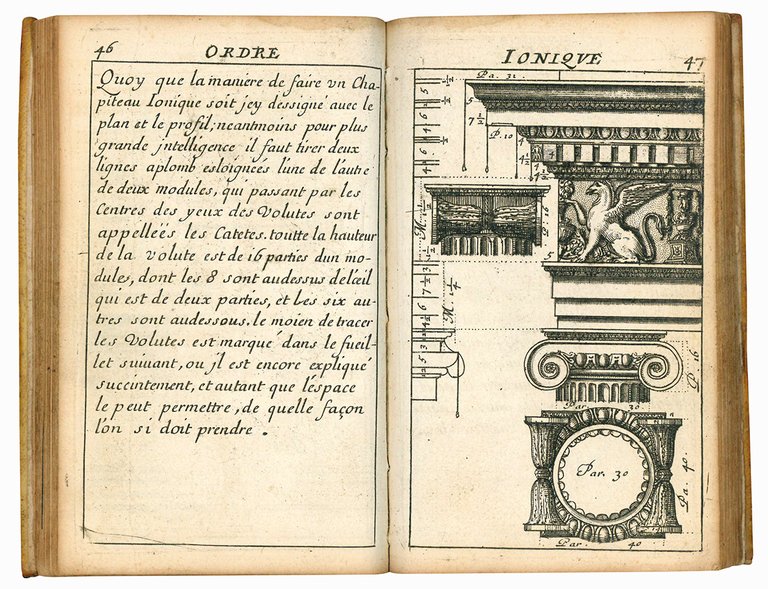 46 ORDRE
Quoy que la maniere de faire vn Cha-
piteau Ionique soit jcy dessigné auec le
plan et le profil; neantmoins pour plus
grande jntelligence il faut tirer deux
lignes aplomb esloignées l'une de l'autre
de deux modules, qui passant par les
Centres des yeux des Volutes sont
appelleés les Catetes. toutte la hauteur
de la volute est de 16 parties dun mo-
dule, dont les 8 sont audessus de l'œil
qui est de deux parties, et Les six au-
tres sont audessous. le moien de tracer
les Volutes est marqué dans le fueil-
let suiuant, ou jl est encore expliqué
succintement, et autant que l'éspace
le peut permettre, de quelle façon
l'on si doit prendre .
IONIQVE 47
Pa. 31.
5
7 1/2
P. 10
6
4 1/2
4
P. 18
M. 1 1/2
5
6
7 1/2
M. 1 1/4
3
5
Pa. 16
Par. 30
Par. 30
Pa. 40.
Par 40